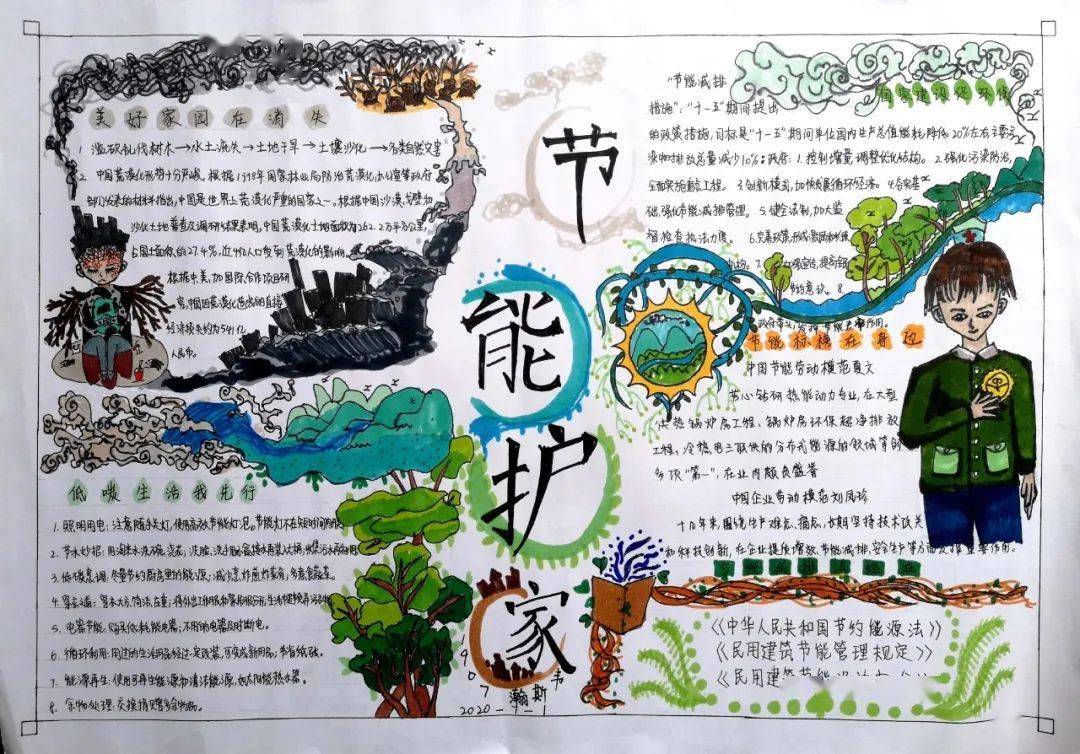 美好家园在消失
1. 滥砍乱伐树木→水土流失→土地干旱→土壤沙化→各类自然灾害
2. 中国荒漠化形势十分严峻，根据1998年国家林业局防治荒漠化办公室等政府
部门发表的材料指出，中国是世界上荒漠化严重的国家之一。根据中国沙漠、戈壁和
沙化土地普查及调研结果表明，中国荒漠化土地面积为262.2万平方公里，
占国土面积的27.4%，近4亿人口受到荒漠化的影响。
根据中、美、加国际合作项目研
究，中国因荒漠化造成的直接
经济损失约为541亿
人民币。
低碳生活我先行
1. 照明用电：注意随手关灯，使用高效节能灯泡，节能灯不在短时间内
2. 节水妙招：用淘米水洗碗、浇花，洗脸、洗手
3. 低碳烹调：尽量节约厨房里的能源；减少煎、炸
4. 穿衣之道：穿衣大方、简洁、庄重；
5. 电器节能：购买低耗能电器；不用的电器及时断电。
6. 循环利用：用过的生活用品经过一定改装，可变成新用品；节省纸张。
7. 能源再生：使用可再生能源和清洁能源，如太阳能热水器。
8. 余物处理：交换捐赠多余物品。
节
能
护
家
907
韦
瀚斯
2020-7-1
"节能减排
措施"："十一五"期间提出
的政策措施，目标是"十一五"期间单位国内生产总值能耗降低20%左右，主要污
染物排放总量减少10%。政府：1. 控制增量，调整优化结构。2. 强化污染防治，
全面实施重点工程。3. 创新模式，加快发展循环经济。4. 夯实基
础，强化节能减排管理。5. 健全法制，加大监
督检查执法力度。6. 完善政策，形成激励和约束
机构。7. 宣传，提高全民
节约意识。8.
政府带头，发挥节能表率作用。
节能标榜在身边
中国节能劳动模范夏文
节心钻研热能动力专业，在大型
供热锅炉房工程、锅炉房环保超净排放
工程、冷热电三联供的分布式能源的领域等的
多项"第一"，在业内颇负盛誉
中国企业劳动模范刘凤珍
十几年来，围绕生产难点、描点，长期坚持技术攻关
和科技创新，在企业提质增效、节能减排、安全生产等方面发挥重要作用。
《中华人民共和国节约能源法》
《民用建筑节能管理规定》
《民用建筑节能